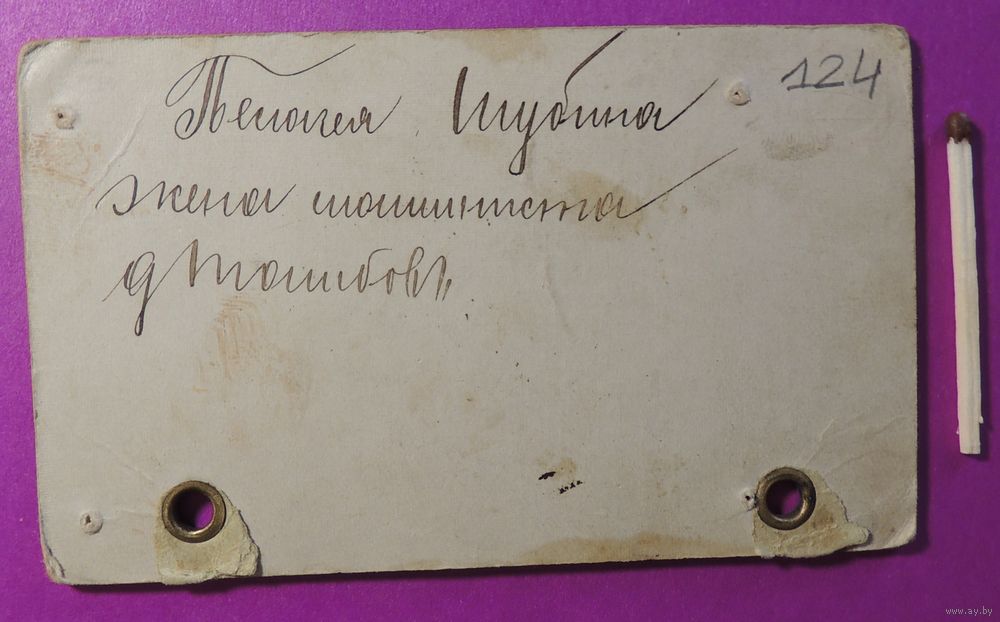 Пелагея Шубина
124
жена машиниста
д
www.ay.by